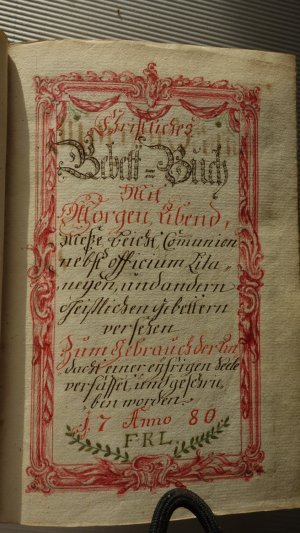 Geistliches
Gebett=Buch
Mit
Morgen Abend,
Meße Beicht Comunion
nebst officium Lita,
neyen, und andern
Geistlichen gebettern
versehen
Zum gebrauch der An
dacht einer eyfrigen Seele
verfasset und geschri,
ben worden.
17 Anno 80
F.R.L.